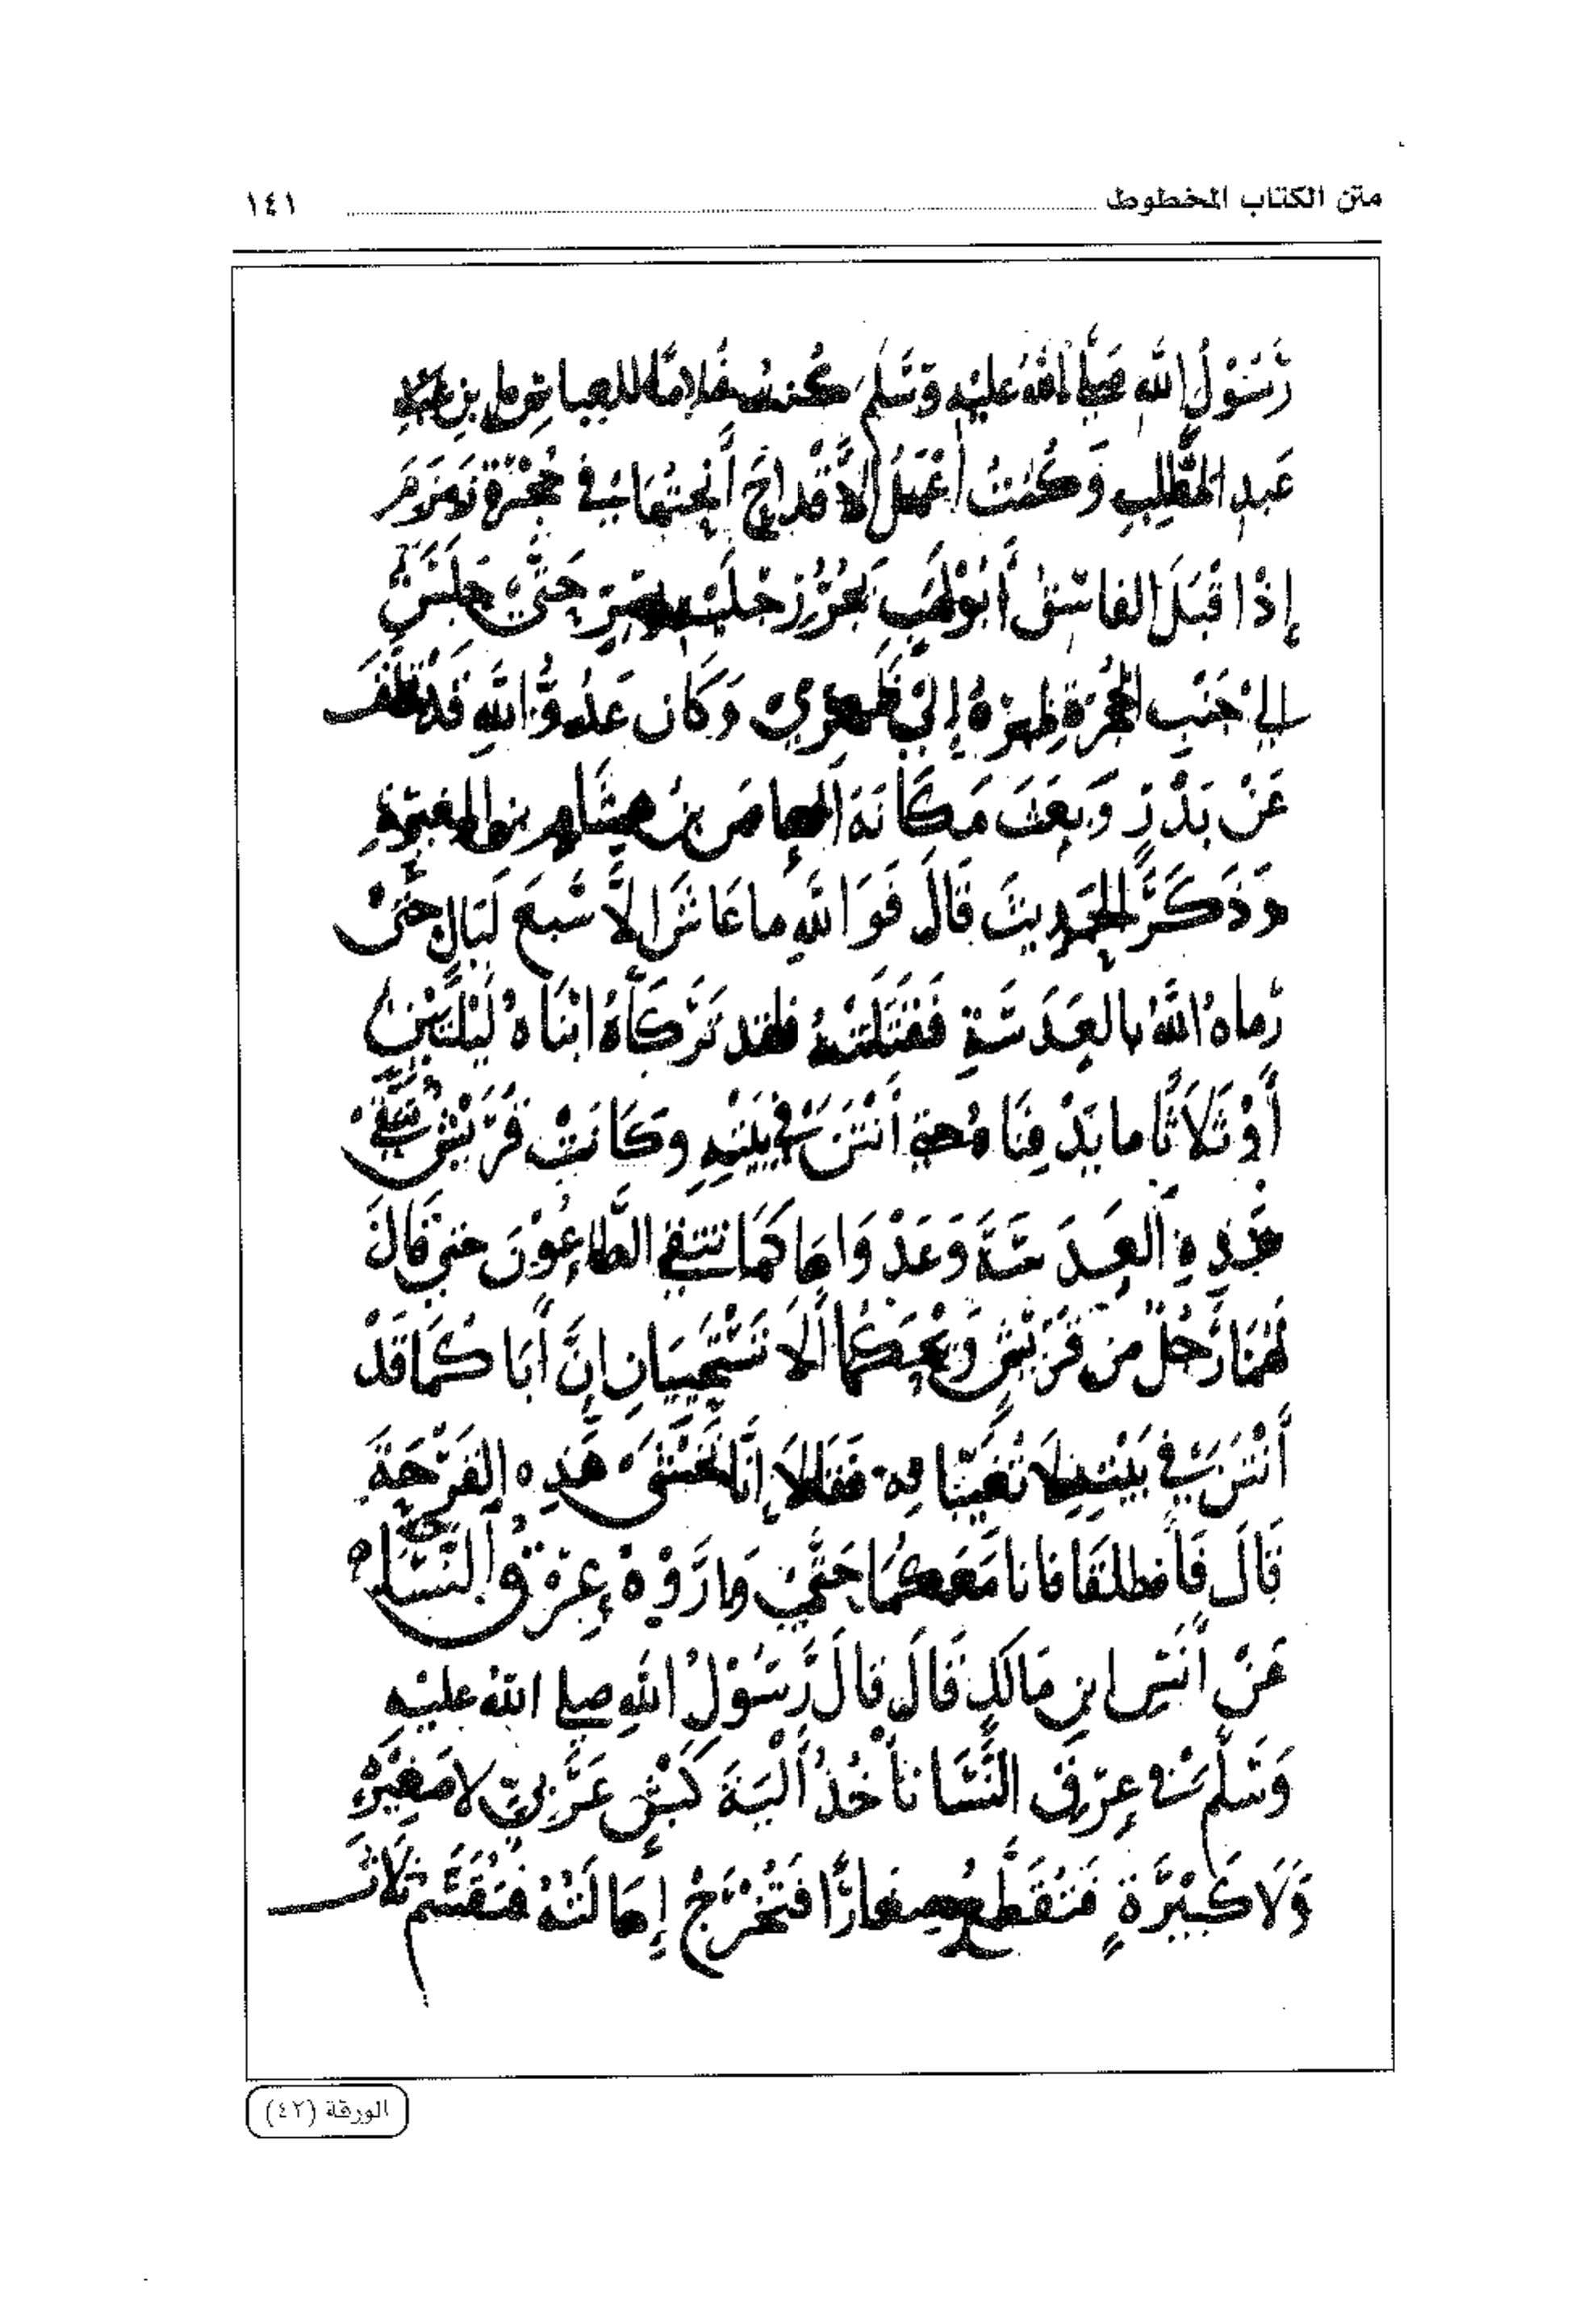 متن الكتاب المخطوط ١٤١
رَسُوْلُ اللّه صَلى اللّهُ عليْهِ وَسَلم كُنت غُلامًا للعباس بنِ
عَبدِ المُطَّلِبِ وَكُنتُ أعْمَلُ الأقْداحَ أَنحِتُهَا فِي حُجْرَة زَمزَمَ
إِذْ اقْبَلَ الفاسِق أَبُولَهَبٍ يَجُرُّ رِجْلَيْه حَتَّى جَلَسَ
إلى جَنْبِ الحُجْرَةِ ظهرهُ إليْ ظهري وَكَان عَدُوُّ اللَّهِ قَدْ تخَلَّفَ
عَنْ بَدْرٍ وَبَعَثَ مَكَانَهُ العاصَ بنَ هِشَامِ بن المغيرةِ
وَذَكَرَ الحَدِيثَ قَالَ فَوَ اللَّهِ ما عَاشَ إلاَّ سَبعَ لَيَالٍ حتَّى
رَماهُ اللَّهُ بالعَدَسَةِ فَقَتَلَتْهُ فلقد تَرَكَاهُ ابْنَاهُ لَيْلَتَيْنِ
أَوْ ثَلاَثًا ما يَدْفِنَا هُ حتى أَنْتَنَ فِي بَيْتِهِ وَكَانَتْ قُرَيْش تتقي
هَذِهِ العَدَسَةَ وَعَدْوَاهَا كَمَا تتقي الطَّاعُوْنَ حتى قَالَ
لَهُمَا رَجُلٌ مِن قُرَيْشٍ وَيْحَكُمَا أَلاَ تَسْتَحِييَانِ إِنَّ أَبَا كُمَا قَدْ
أَنْتَنَ فِي بَيْتِهِ لاَ تُغَيِّبَا نِه فَقَالاَ إِنَّا نَخْشَى هَذِه القَرْحَةَ
قَالَ فَانطلقَا فانا مَعَكُمَا حَتَّى وَارَوْهُ عِرْقُ النَّسَا
عَنْ أَنَسِ ابنِ مَالكٍ قَالَ قَالَ رَسُوْلُ اللَّهِ صلى اللهُ عليْهِ
وَسَلَّمَ فِي عِرْقِ النَّسَا تأخُذُ أَلْيَةَ كَبْشٍ عَرَبِيٍّ لا صَغِيْرَةٍ
وَلاَ كَبِيْرَةٍ فَتُقَطَّعُ صِغَارًا فَتُخْرَجُ إِهَالَتُهُ فَتُقَسَّم ثلاثَ
الورقة (٤٢)